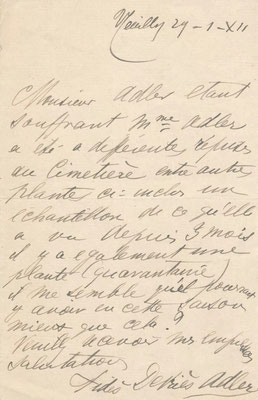 Neuilly 29-1-XII
Monsieur Adler etant
souffrant Mme Adler
a été a differente reprise
au Cimetière entre autre
plante ci-inclus un
echantillon de ce qu'elle
a vu depuis 3 mois
il y a egalement une
plante (quarantaine)
il me semble qu'il pourrait
y avoir en cette saison
mieux que cela?
Veuillez avoir mes empressées
Salutations
Fidès Devriès Adler